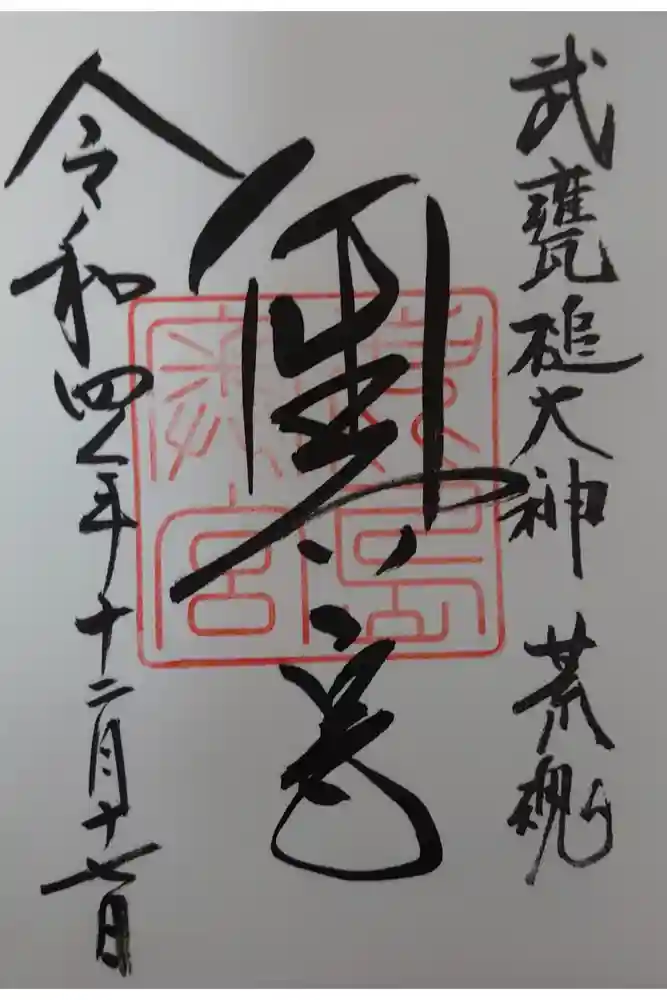 武甕槌大神 荒魂
奥宮
令和四年十二月十七日
鹿島
奥宮